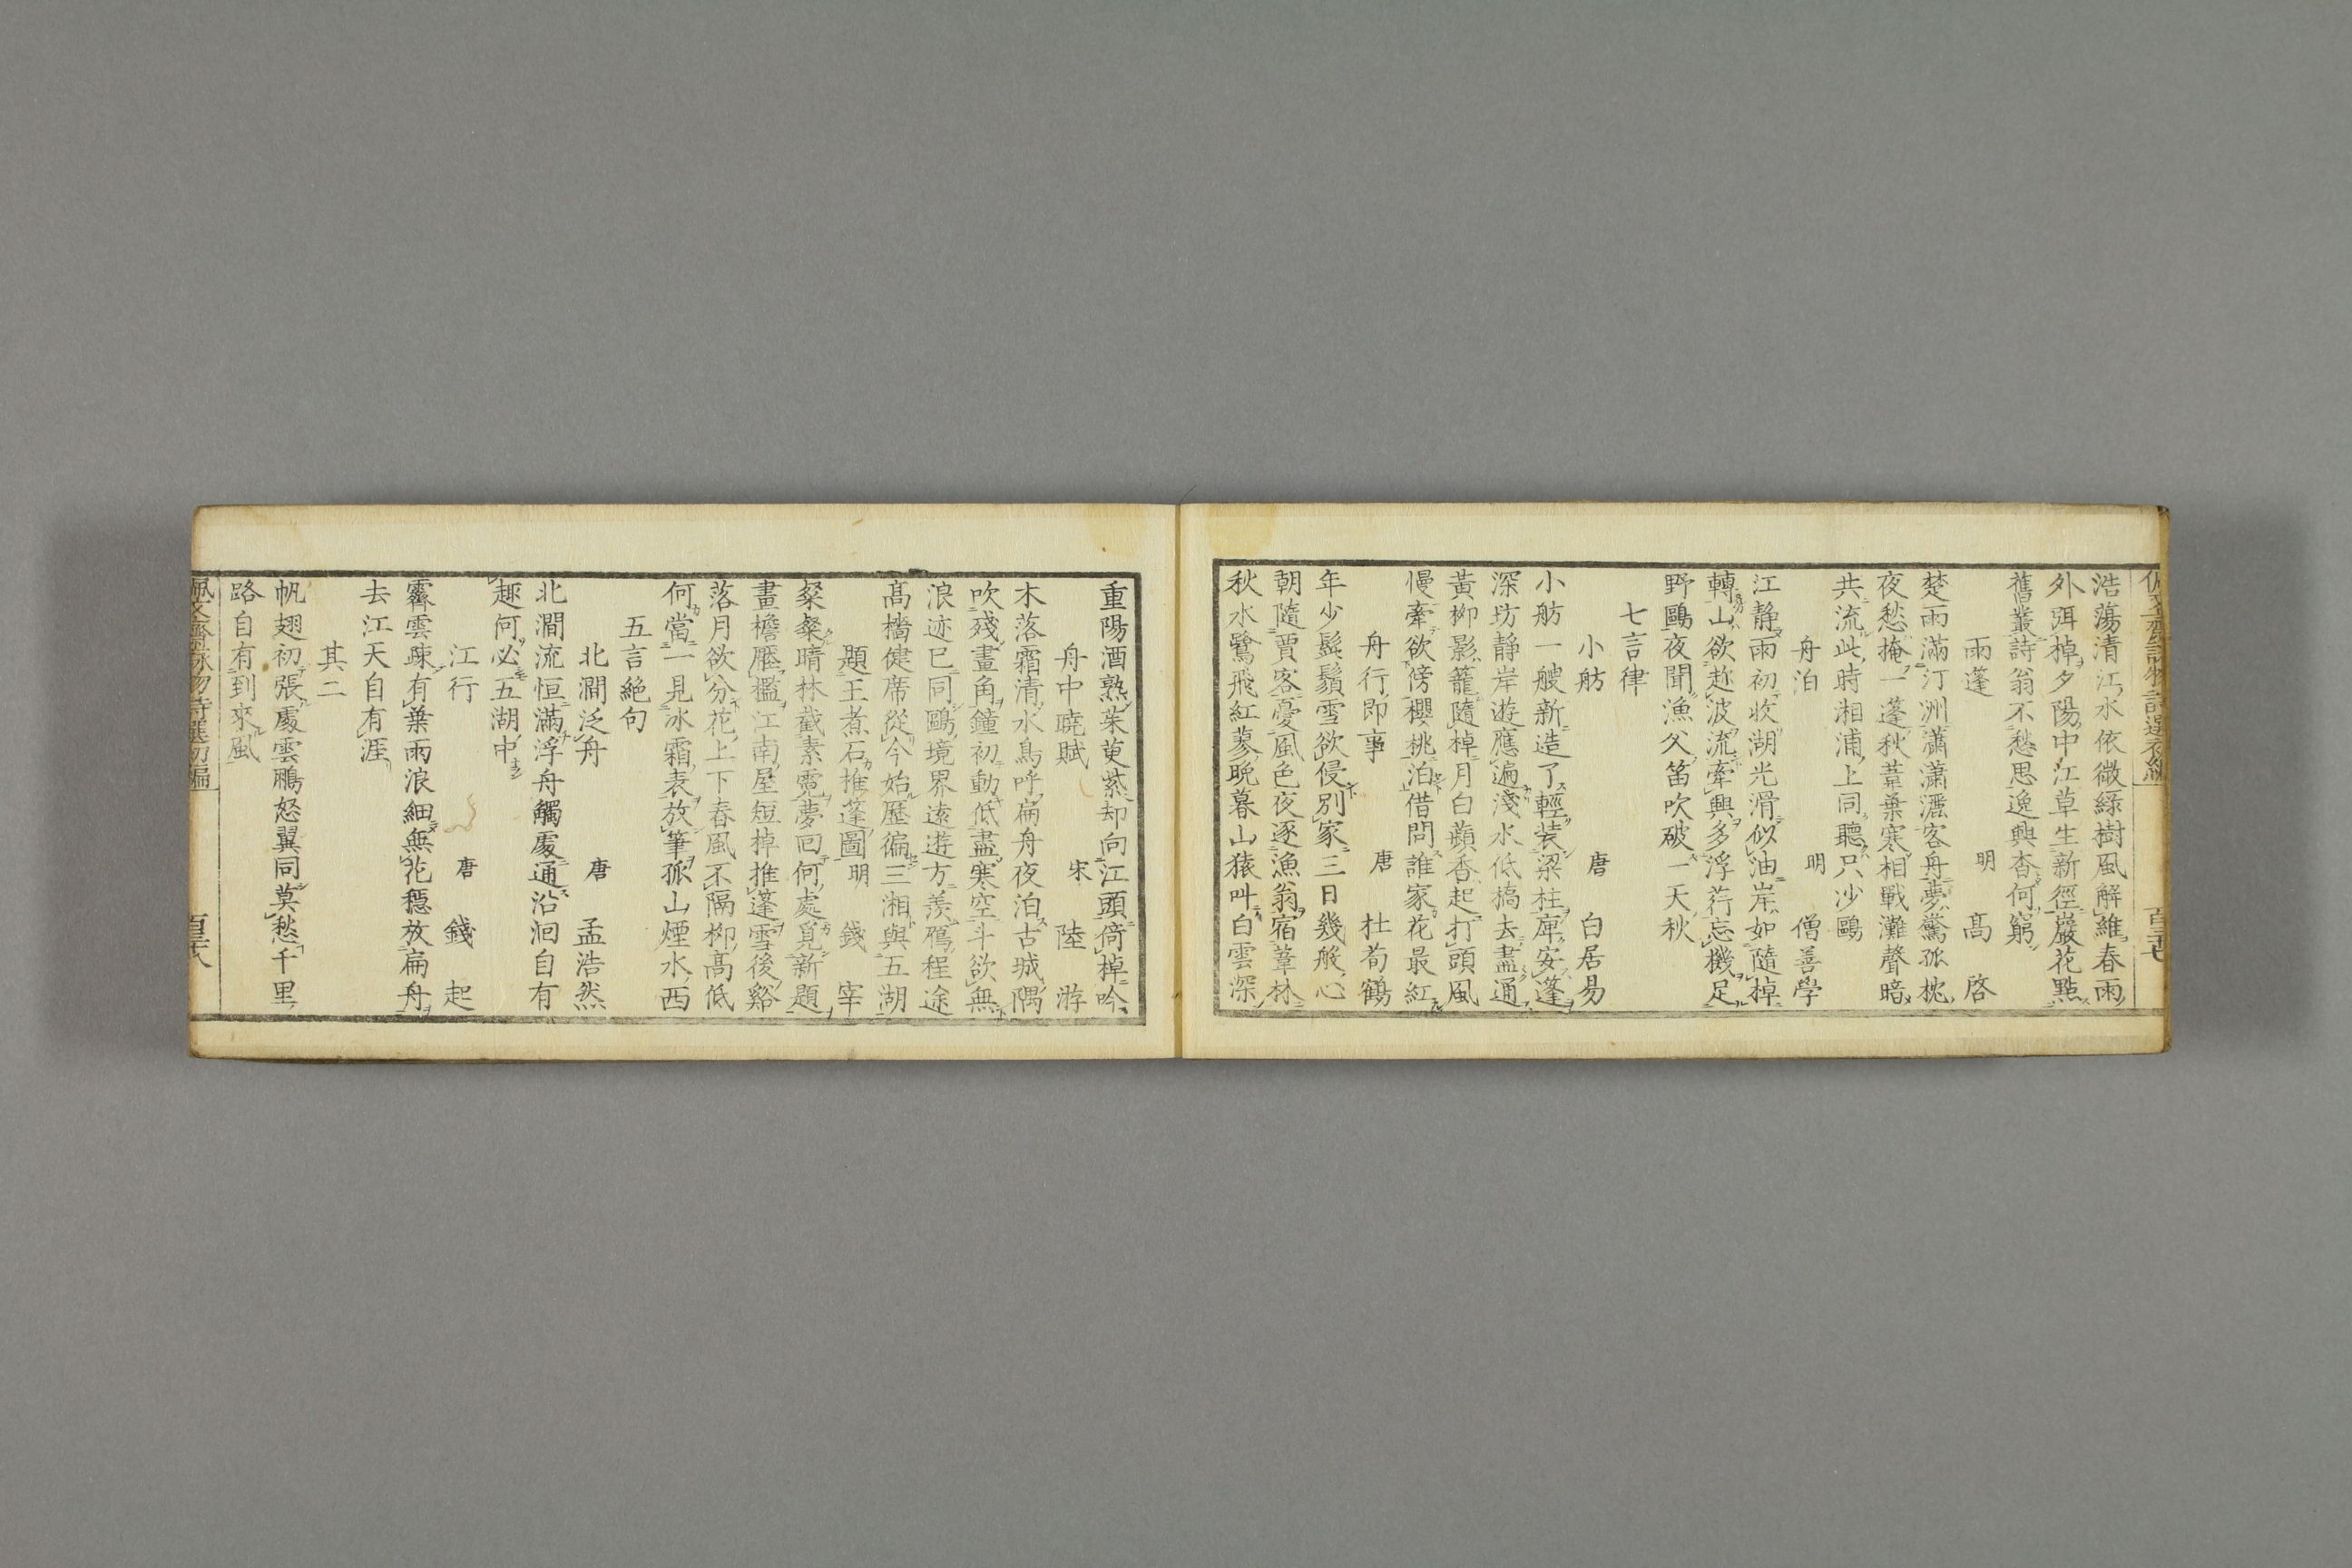 浩蕩清江水依微緑樹風解維春雨
外弭棹夕陽中江草生新徑巖花點
舊叢詩翁不愁思逸興杳何窮
雨蓬 明 高啓
楚雨滿汀洲瀟瀟濕客舟夢驚孤枕
夜愁掩一蓬秋葦葉寒相戰灘聲暗
共流此時湘浦上同聽只沙鷗
舟泊 明 僧善學
江静雨初收湖光滑似油岸如隨棹
轉山欲趁波流牽興多浮荇忘機足
野鷗夜聞漁父笛吹破一天秋
七言律
小舫 唐 白居易
小舫一艘新造了輕装梁柱庳安蓬
深坊静岸遊應遍淺水低橋去盡通
黃柳影籠隨棹月白蘋香起打頭風
慢牽欲傍櫻桃泊借問誰家花最紅
舟行即事 唐 杜荀鶴
年少鬂鬚雪欲侵別家三日幾般心
朝隨賈客憂風色夜逐漁翁宿葦林
秋水鷺飛紅蓼晚暮山猿叫白雲深
重陽酒熟茱萸紫却向江頭倚棹吟
舟中曉賦 宋 陸游
木落霜清水鳥呼扁舟夜泊古城隅
吹殘畫角鐘初動低盡寒空斗欲無
浪迹已同鷗境界遠遊方羨鴈程途
高檣健席從今始歷徧三湘與五湖
題王煮石推蓬圖 明 錢宰
粲粲晴林截素霓夢回何處覓新題
畫檐壓檻江南屋短棹推蓬雪後谿
落月欲分花上下春風不隔柳高低
何當一見冰霜表放筆孤山煙水西
五言絕句
北澗泛舟 唐 孟浩然
北澗流恒滿浮舟觸處通沿洄自有
趣何必五湖中
江行 唐 錢起
霽雲疎有葉雨浪細無花穩放扁舟
去江天自有涯
其二
帆翅初張處雲鵬怒翼同莫愁千里
路自有到來風
佩文齋詠物詩選初編 百三十八